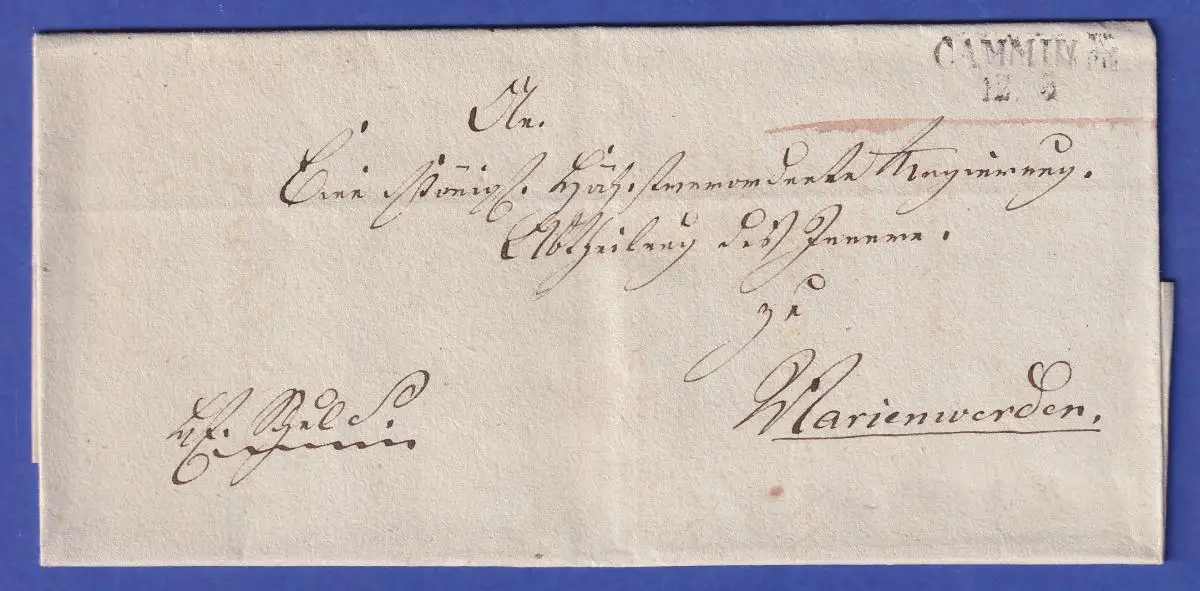 CAMMIN
12 5
An.
Eine Königl. Hochverordnete Regierung.
Abtheilung des Innern.
zu
Marienwerder.